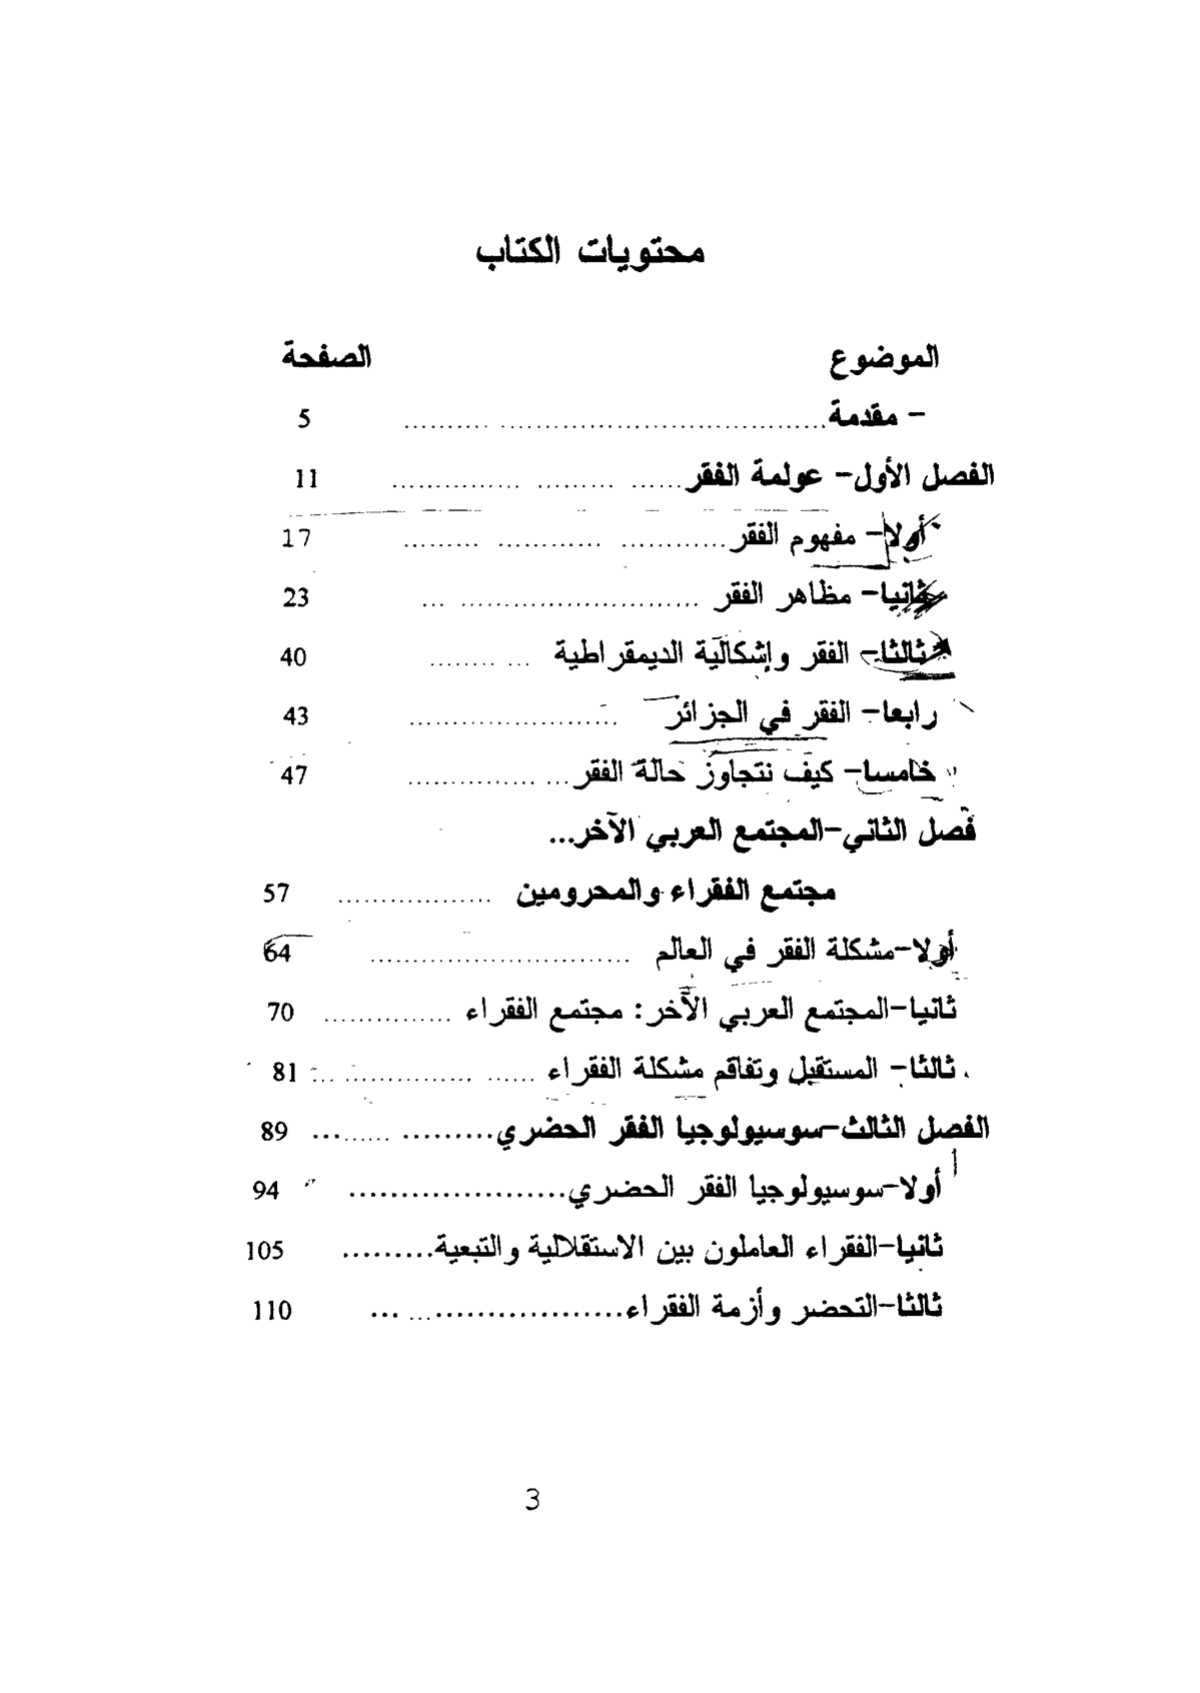 محتويات الكتاب
الموضوع الصفحة
- مقدمة.......................................... ........... 5
الفصل الأول- عولمة الفقر...... ...... ......... ............... 11
أولا- مفهوم الفقر............ ............ ............ ......... 17
ثانيا- مظاهر الفقر ........................... ... 23
ثالثا- الفقر وإشكالية الديمقراطية ... ........ 40
رابعا- الفقر في الجزائر ........................ 43
خامسا- كيف نتجاوز حالة الفقر... ............... 47
فصل الثاني-المجتمع العربي الآخر...
مجتمع الفقراء والمحرومين .................. 57
أولا-مشكلة الفقر في العالم .............................. 64
ثانيا-المجتمع العربي الآخر: مجتمع الفقراء ............... 70
ثالثا- المستقبل وتفاقم مشكلة الفقراء ...... ............... ... 81
الفصل الثالث-سوسيولوجيا الفقر الحضري......... ......... 89
أولا-سوسيولوجيا الفقر الحضري..................... 94
ثانيا-الفقراء العاملون بين الاستقلالية والتبعية......... 105
ثالثا-التحضر وأزمة الفقراء..................... ... ... 110
3